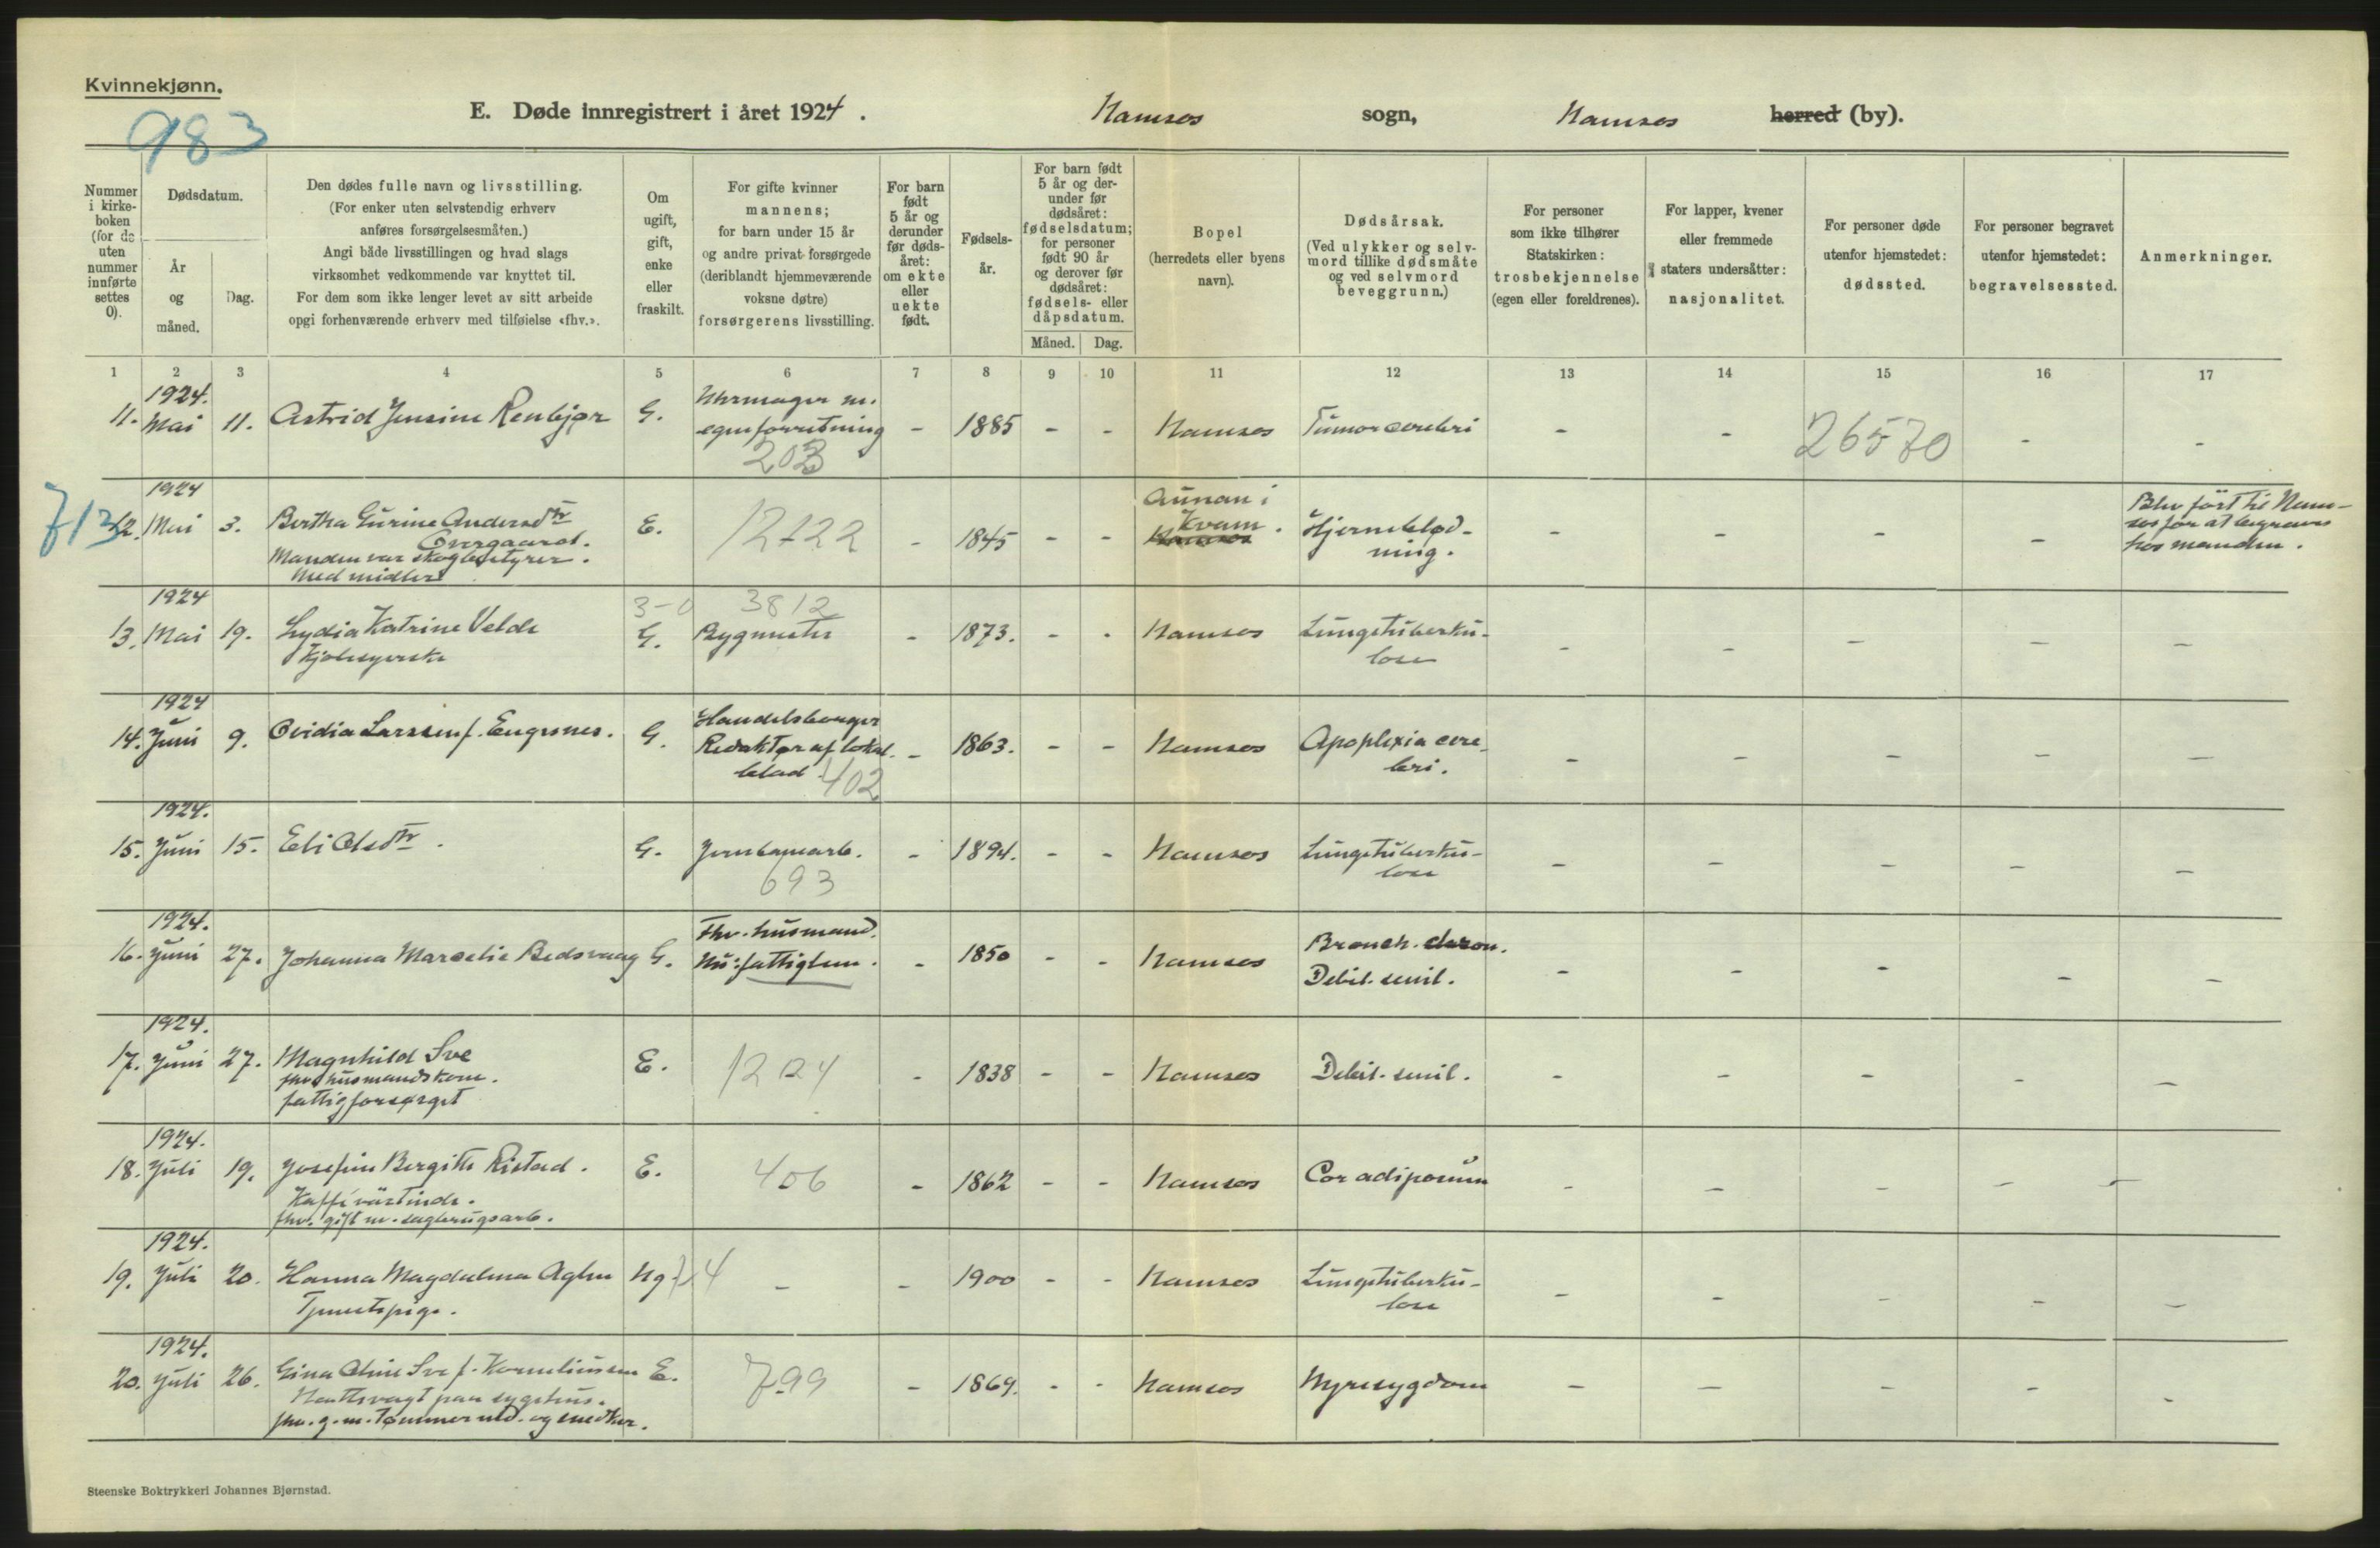 Kvinnekjønn.
983
E. Døde innregistrert i året 1924. Namsos sogn, Namsos herred (by).
Nummer i kirkeboken (for de uten nummer innførte settes 0).
Dødsdatum.
År og måned.
Dag.
Den dødes fulle navn og livsstilling.
(For enker uten selvstendig erhverv anføres forsørgelsesmåten.)
Angi både livsstillingen og hvad slags virksomhet vedkommende var knyttet til.
For dem som ikke lenger levet av sitt arbeide opgi forhenværende erhverv med tilføielse «fhv.».
Om ugift, gift, enke eller fraskilt.
For gifte kvinner mannens; for barn under 15 år og andre privat forsørgede (deriblandt hjemmeværende voksne døtre) forsørgerens livsstilling.
For barn født 5 år og derunder før dødsåret: om ekte eller uekte født.
Fødselsår.
For barn født 5 år og derunder før dødsåret: fødselsdatum; for personer født 90 år og derover før dødsåret: fødsels- eller dåpsdatum.
Måned. Dag.
Bopel (herredets eller byens navn).
Dødsårsak.
(Ved ulykker og selvmord tillike dødsmåte og ved selvmord beveggrunn.)
For personer som ikke tilhører Statskirken: trosbekjennelse (egen eller foreldrenes).
For lapper, kvener eller fremmede staters undersåtter: nasjonalitet.
For personer døde utenfor hjemstedet: dødssted.
For personer begravet utenfor hjemstedet: begravelsessted.
Anmerkninger.
1 2 3 4 5 6 7 8 9 10 11 12 13 14 15 16 17
1924.
11. Mai 11. Astrid Jensine Renbjør G. Uhrmager m. egen forretning - 1885 - - Namsos Tumor cerebri - - 26570 - -
203
713
1924
12. Mai 3. Bertha Gurine Andersdtr Overgaard. E. 12122 - 1845 - - Aunan i Kvam. Namsos Hjerneblødning. - - - - Blev ført til Namsos for at begraves hos manden.
Manden var skogbestyrer.
Med midler
1924 3-0 3812
13. Mai 19. Lydia Katrine Velde G. Bygmester - 1873. - - Namsos Lungetuberkulose - - - - -
Kjolesyerske
1924
14. Juni 9. Ovidia Larssen f. Engesnes. G. Handelsbruger Redaktør af lokalblad - 1863. - - Namsos Apoplexia cerebri. - - - - -
402
1924.
15. Juni 15. Eli Olsdtr. G. Jernbanearb. - 1894. - - Namsos Lungetuberkulose - - - - -
693
1924.
16. Juni 27. Johanna Marselie Bedsvaag G. Fhv. husmand. Nu: fattiglem. - 1850 - - Namsos Bronch. chron. Debil. senil. - - - - -
1924.
17. Juni 27. Magnhild Sve E. 1224 - 1838 - - Namsos Debil. senil. - - - - -
fhv. husmandskone.
fattigforsørget
1924.
18. Juli 19. Josefine Bergitte Ristad. E. 406 - 1862 - - Namsos Cor adiposum - - - - -
Kaffivärtinde.
fhv. gift m. sagbrugsarb.
1924.
19. Juli 20. Hanna Magdalena Aglen Ug. 714 - - 1900 - - Namsos Lungetuberkulose - - - - -
Tjenestepige.
1924.
20. Juli 26. Gina Oline Sve f. Korneliussen E. 799 - 1869. - - Namsos Nyresygdom - - - - -
Nattevagt paa sygehus.
fhv. g. m. Tømmermd. og snedker.
Steenske Boktrykkeri Johannes Bjørnstad.